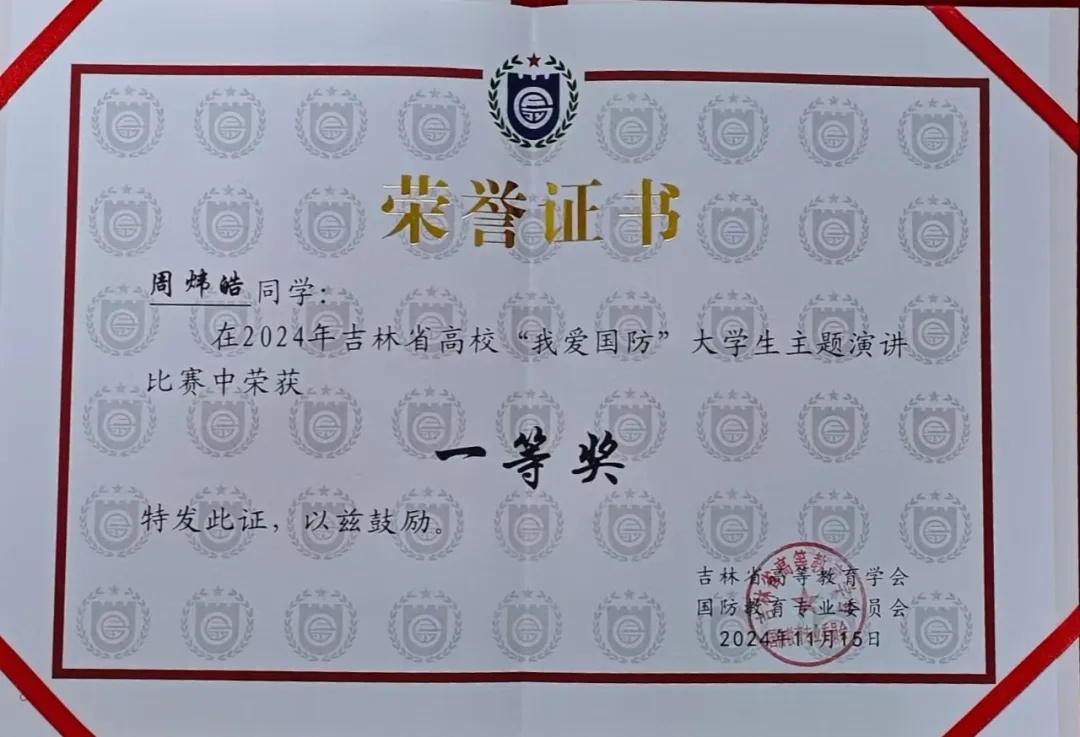 荣誉证书
周炜皓同学：
在2024年吉林省高校“我爱国防”大学生主题演讲
比赛中荣获
一等奖
特发此证，以兹鼓励。
吉林省高等教育学会
国防教育专业委员会
2024年11月15日